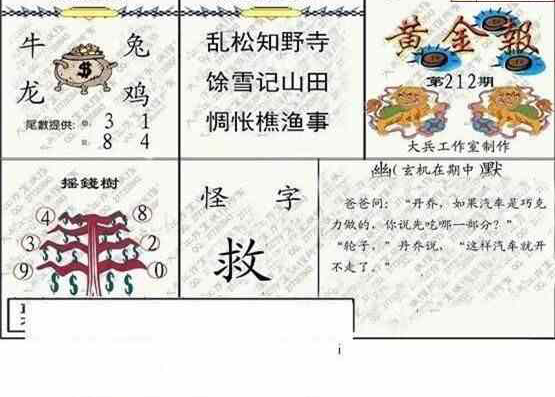 牛 兔
龙 鸡
尾數提供: 3 1
8 4
乱松知野寺
馀雪记山田
惆怅樵渔事
黄金報
第212期
大兵工作室制作
摇錢樹
4 8
3 2
9 0
怪 字
救
幽(玄机在期中)默
爸爸问：“丹乔，如果汽车是巧克
力做的，你说先吃哪一部分？”
“轮子，”丹乔说，“这样汽车就开
不走了．”
i